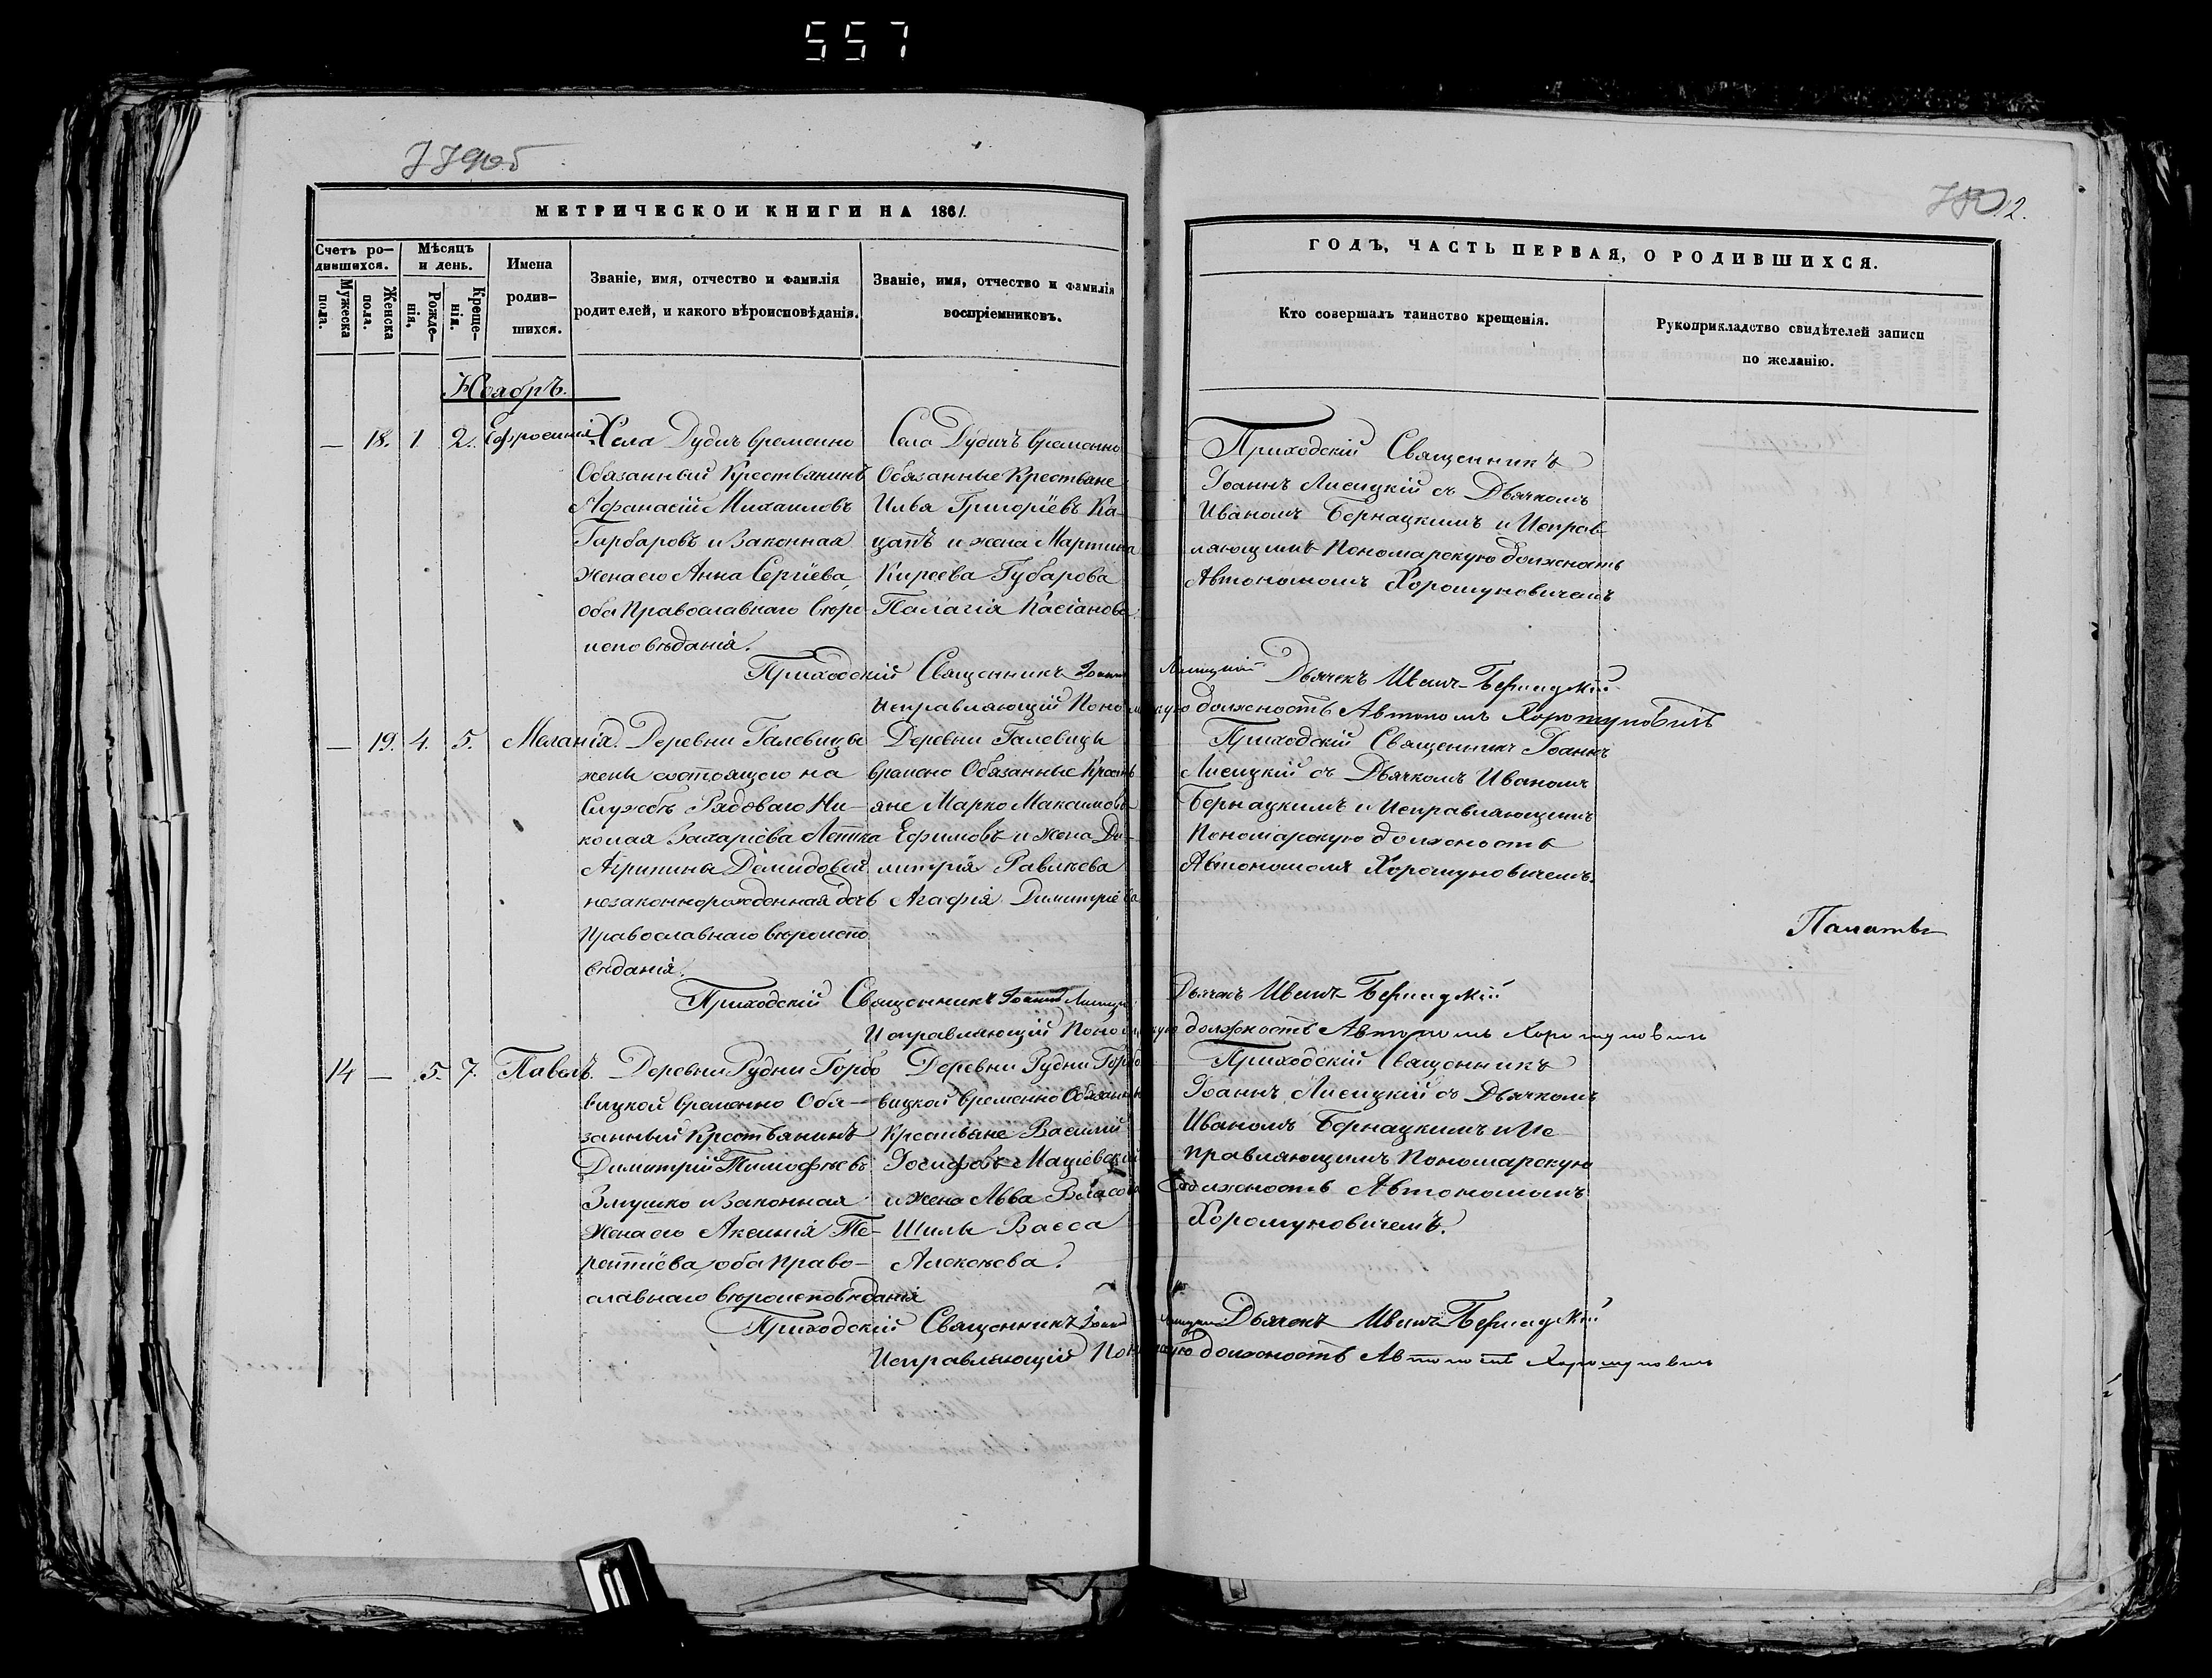 557
779об
782.
МЕТРИЧЕСКОЙ КНИГИ НА 1861.
Счетъ ро-
дившихся.
Мѣсяцъ
и день.
Мужеска
пола.
Женска
пола.
Рожде-
нія,
Креще-
нія.
Имена
родив-
шихся.
Званіе, имя, отчество и фамилія
родителей, и какого вѣроисповѣданія.
Званіе, имя, отчество и фамилія
воспріемниковъ.
Ноябрь.
— 18. 1. 2. Ефросинія
Села Дудичъ временно
Обязанный Крестьянинъ
Афанасій Михаиловъ
Гарбаровъ и Законная
Жена его Анна Сергіева,
оба Православнаго вѣро
исповѣданія.
Села Дудичъ временно
Обязанные Крестьяне
Илья Григоріевъ Ка-
цапъ и жена Мартина
Киреева Губарова
Палагія Касіанова.
Приходскій Священникъ Іоаннъ
Исправляющій Поно
— 19. 4. 5. Меланія.
Деревни Галевицы
жены состоящего на
Службѣ Рядоваго Ни-
колая Захаріева
Агрипины Демидовой
незаконнорожденная дочь
Православнаго вѣроиспо
вѣданія.
Деревни Галевицы
временно Обязанные Кресть
яне Марко Максимовъ
Ефимовъ и жена Ди-
митрія Павлюева
Агафія Димитріева
Приходскій Священникъ Іоаннъ Лисицкій
Исправляющій Поно
14 — 5. 7. Павелъ.
Деревни Рудни Горбо
вицкой временно Обя-
занный Крестьянинъ
Димитрій Тимофѣевъ
Змушко и Законная
Жена его Аксинія Те-
рентіева, оба Право-
славнаго вѣроисповѣданія
Деревни Рудни Горбо
вицкой временно Обязанн
Крестьяне Василій
Іосифовъ Маціевскій
и жена Льва Власова
Шилы Васса
Алексѣева.
Приходскій Священникъ Іоаннъ
Исправляющій Поно
ГОДЪ, ЧАСТЬ ПЕРВАЯ, О РОДИВШИХСЯ.
Кто совершалъ таинство крещенія.
Рукоприкладство свидѣтелей записи
по желанію.
Приходскій Священникъ
Іоаннъ Лисицкій съ Дьячкомъ
Иваномъ Бернацкимъ и Исправ
ляющимъ Пономарскую должность
Автономомъ Хорошуновичемъ
Лисицкій Дьячекъ Иванъ Бернадскій
должность Автономъ Хорошуновичъ
Приходскій Священникъ Іоаннъ
Лисицкій съ Дьячкомъ Иваномъ
Бернацкимъ и Исправляющимъ
Пономарскую должность
Автономомъ Хорошуновичемъ.
Дьячекъ Иванъ Бернадскій
должность Автономъ Хорошуновичъ
Приходскій Священникъ
Іоаннъ Лисицкій съ Дьячкомъ
Иваномъ Бернацкимъ и Ис-
правляющимъ Пономарскую
должность Автономомъ
Хорошуновичемъ.
Лисицкій Дьячекъ Иванъ Бернадскій
должность Автономъ Хорошуновичъ